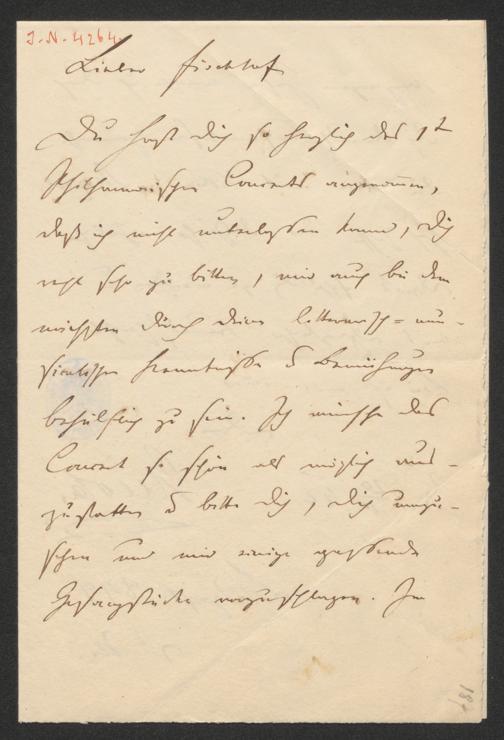 I.N. 4264.
Lieber Fischhof
Du hast Dich so herzlich des 1t
Philharmonischen Concerts angenommen,
daß ich nicht unterlassen kann, Dich
recht sehr zu bitten, mir auch bei dem
nächsten durch Deine litterarisch=mu-
sicalischen Kenntnisse & Bemühungen
behülflich zu sein. Ich wünsche das
Concert so schön als möglich aus-
zustatten & bitte Dich, Dich umzu-
sehen und mir einige passende
Gesangstücke vorzuschlagen. Im